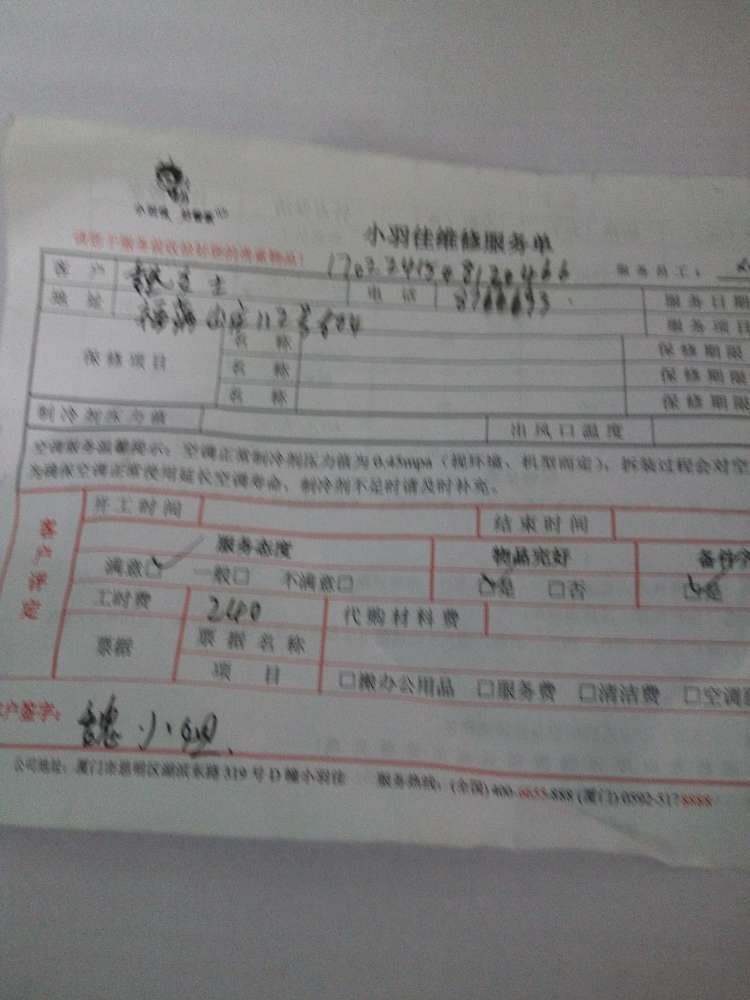 小羽佳维修服务单
服务员工：
客户
电话
服务日期
地址
服务项目
保修项目
名 称
保修期限
名 称
保修期限
名 称
保修期限
制冷剂压力值
出风口温度
空调服务温馨提示：空调正常制冷剂压力值为0.45mpa（视环境、机型而定），拆装过程会对空
为确保空调正常使用延长空调寿命，制冷剂不足时请及时补充。
客户评定
开工时间
结束时间
服务态度
物品完好
备件齐
满意□ 一般□ 不满意□
□是 □否
□是
工时费
240
代购材料费
票据
票据名称
项 目
□搬办公用品 □服务费 □清洁费 □空调
户签字：
公司地址：厦门市思明区湖滨东路319号D幢小羽佳 服务热线：(全国)400-6655-888 (厦门)0592-5178888